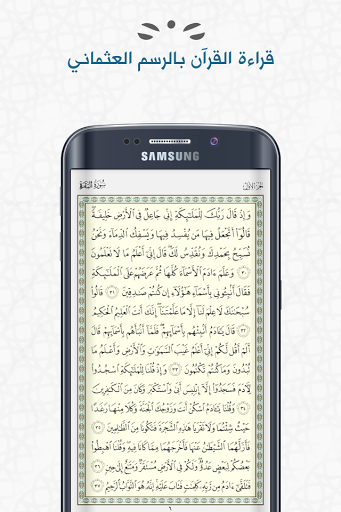 قراءة القرآن بالرسم العثماني
SAMSUNG
سُورَةُ البَقَرَةِ الجُزْءُ الأَوَّلُ
وَإِذْ قَالَ رَبُّكَ لِلْمَلَٰٓئِكَةِ إِنِّي جَاعِلٌ فِي ٱلْأَرْضِ خَلِيفَةً
قَالُوٓا۟ أَتَجْعَلُ فِيهَا مَن يُفْسِدُ فِيهَا وَيَسْفِكُ ٱلدِّمَآءَ وَنَحْنُ
نُسَبِّحُ بِحَمْدِكَ وَنُقَدِّسُ لَكَ قَالَ إِنِّيٓ أَعْلَمُ مَا لَا تَعْلَمُونَ
٣٠ وَعَلَّمَ ءَادَمَ ٱلْأَسْمَآءَ كُلَّهَا ثُمَّ عَرَضَهُمْ عَلَى ٱلْمَلَٰٓئِكَةِ
فَقَالَ أَنۢبِـُٔونِي بِأَسْمَآءِ هَٰٓؤُلَآءِ إِن كُنتُمْ صَٰدِقِينَ ٣١ قَالُوا۟
سُبْحَٰنَكَ لَا عِلْمَ لَنَآ إِلَّا مَا عَلَّمْتَنَآ إِنَّكَ أَنتَ ٱلْعَلِيمُ
ٱلْحَكِيمُ ٣٢ قَالَ يَٰٓـَٔادَمُ أَنۢبِئْهُم بِأَسْمَآئِهِمْ فَلَمَّآ أَنۢبَأَهُم بِأَسْمَآئِهِمْ قَالَ
أَلَمْ أَقُل لَّكُمْ إِنِّيٓ أَعْلَمُ غَيْبَ ٱلسَّمَٰوَٰتِ وَٱلْأَرْضِ وَأَعْلَمُ مَا
تُبْدُونَ وَمَا كُنتُمْ تَكْتُمُونَ ٣٣ وَإِذْ قُلْنَا لِلْمَلَٰٓئِكَةِ ٱسْجُدُوا۟
لِـَٔادَمَ فَسَجَدُوٓا۟ إِلَّآ إِبْلِيسَ أَبَىٰ وَٱسْتَكْبَرَ وَكَانَ مِنَ ٱلْكَٰفِرِينَ
٣٤ وَقُلْنَا يَٰٓـَٔادَمُ ٱسْكُنْ أَنتَ وَزَوْجُكَ ٱلْجَنَّةَ وَكُلَا مِنْهَا رَغَدًا
حَيْثُ شِئْتُمَا وَلَا تَقْرَبَا هَٰذِهِ ٱلشَّجَرَةَ فَتَكُونَا مِنَ ٱلظَّٰلِمِينَ ٣٥
فَأَزَلَّهُمَا ٱلشَّيْطَٰنُ عَنْهَا فَأَخْرَجَهُمَا مِمَّا كَانَا فِيهِ وَقُلْنَا ٱهْبِطُوا۟
بَعْضُكُمْ لِبَعْضٍ عَدُوٌّ وَلَكُمْ فِي ٱلْأَرْضِ مُسْتَقَرٌّ وَمَتَٰعٌ إِلَىٰ حِينٍ ٣٦
فَتَلَقَّىٰٓ ءَادَمُ مِن رَّبِّهِۦ كَلِمَٰتٍ فَتَابَ عَلَيْهِ إِنَّهُۥ هُوَ ٱلتَّوَّابُ ٱلرَّحِيمُ ٣٧
٦